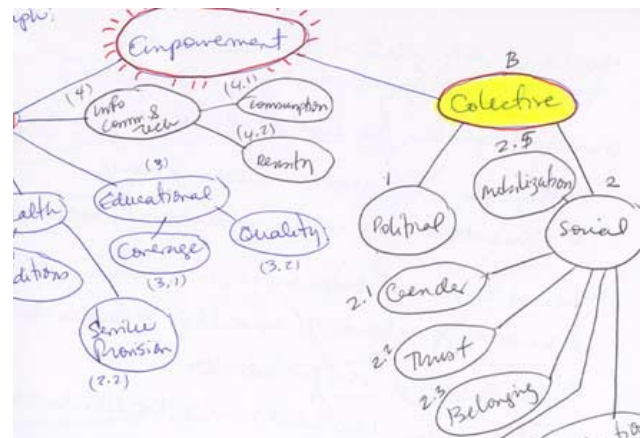 Empowement
B
Colective
(4)
Info
Comm &
tech
(4.1)
Consumption
(4.2)
Density
(3)
Educational
Coverage
(3.1)
Quality
(3.2)
alth
ditions
Service
Provision
(2.2)
1
Political
2.5
Mobilization
2
Social
2.1
Gender
2.2
Trust
2.3
Belonging